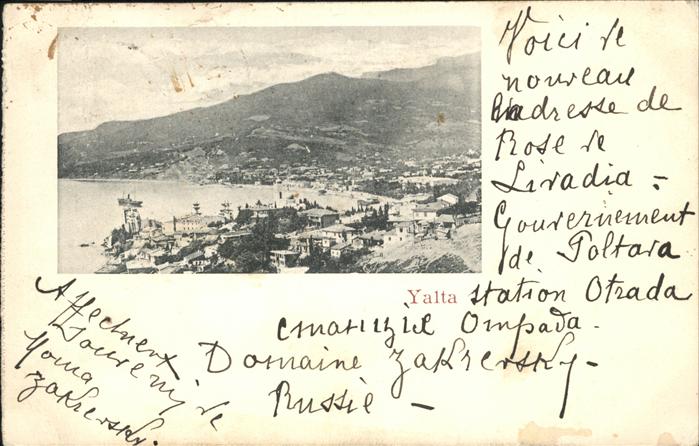 Voici de
nouveau
l'adresse de
Rose de
Livadia -
Gouvernement
de Poltava
Yalta
station Otrada
станція Отрада.
Domaine Zakrevsky -
Russie -
Affectueux
Souvenir de
Zakrevsky.